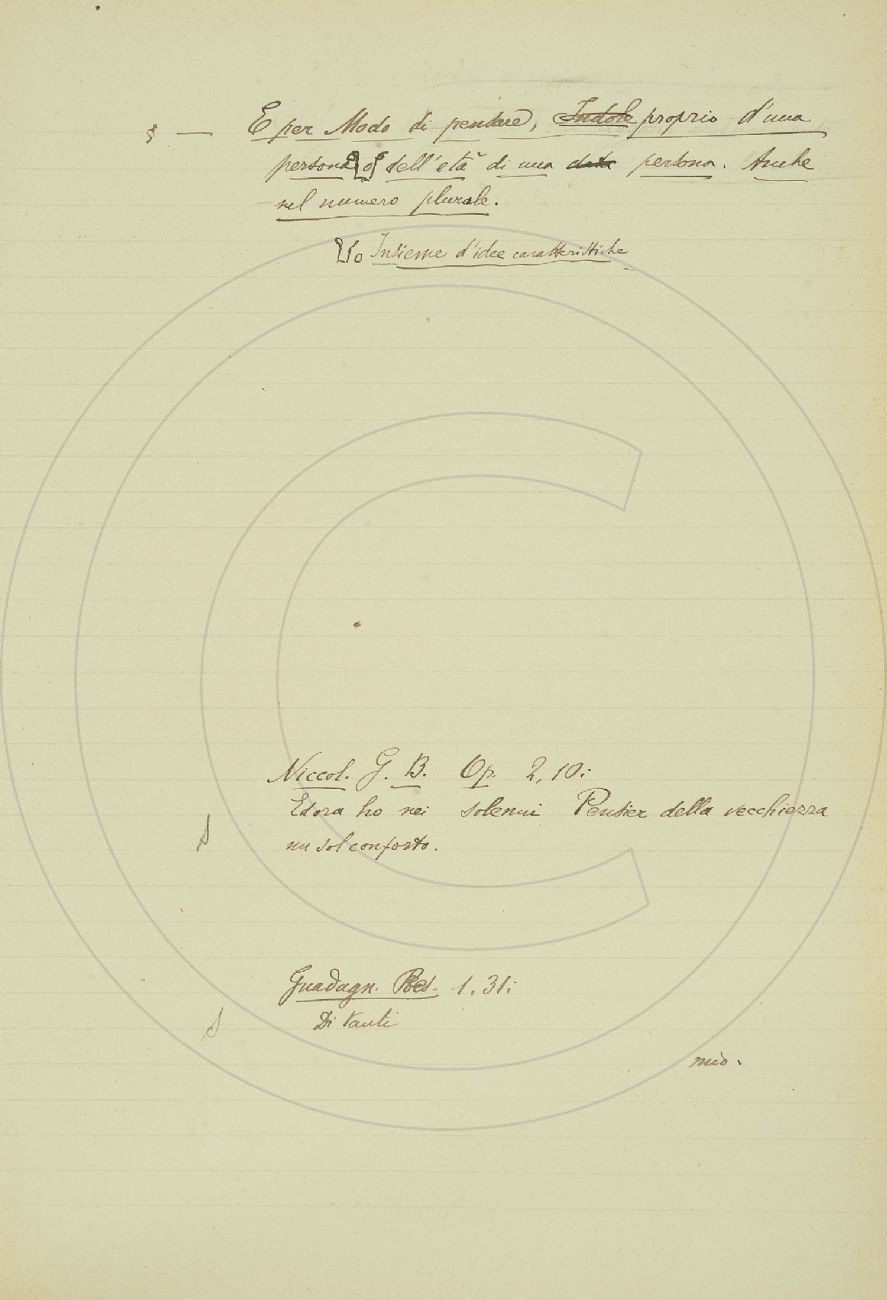 § — E per Modo di pensare, Indole proprio d'una
persona o dell'età di una data persona. Anche
nel numero plurale.
o Insieme d'idee caratteristiche
Niccol. G. B. Op. 2, 10:
Ed ora ho nei solenni Pensier della vecchiezza
un sol conforto.
Guadagn. Poes. 1. 31:
Di tanti
mio.